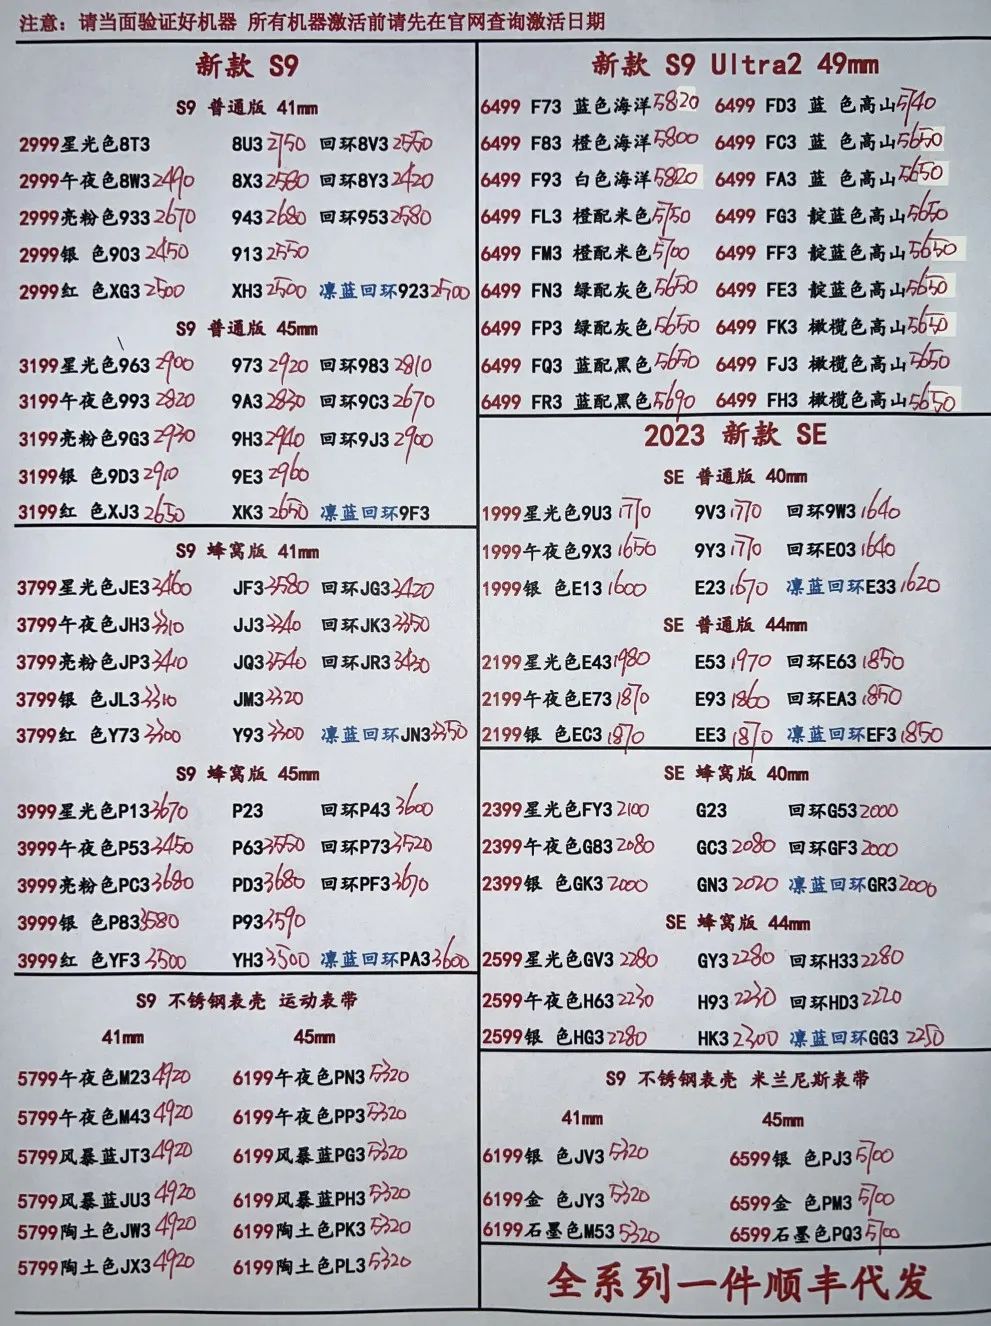 注意：请当面验证好机器 所有机器激活前请先在官网查询激活日期
新款 S9
S9 普通版 41mm
2999星光色8T3 8U3 2750 回环8V3 2550
2999午夜色8W3 2490 8X3 2580 回环8Y3 2420
2999亮粉色933 2670 943 2680 回环953 2580
2999银 色903 2450 913 2550
2999红 色XG3 2500 XH3 2500 凛蓝回环923 2500
S9 普通版 45mm
3199星光色963 2900 973 2920 回环983 2810
3199午夜色993 2820 9A3 2830 回环9C3 2670
3199亮粉色9G3 2930 9H3 2940 回环9J3 2900
3199银 色9D3 2910 9E3 2960
3199红 色XJ3 2650 XK3 2650 凛蓝回环9F3
S9 蜂窝版 41mm
3799星光色JE3 3460 JF3 3580 回环JG3 3420
3799午夜色JH3 3310 JJ3 3340 回环JK3 3350
3799亮粉色JP3 3410 JQ3 3540 回环JR3 3430
3799银 色JL3 3310 JM3 3320
3799红 色Y73 3300 Y93 3300 凛蓝回环JN3 3350
S9 蜂窝版 45mm
3999星光色P13 3670 P23 回环P43 3600
3999午夜色P53 3450 P63 3550 回环P73 3520
3999亮粉色PC3 3680 PD3 3680 回环PF3 3670
3999银 色P83 3580 P93 3590
3999红 色YF3 3500 YH3 3500 凛蓝回环PA3 3600
S9 不锈钢表壳 运动表带
41mm 45mm
5799午夜色M23 4920 6199午夜色PN3 5320
5799午夜色M43 4920 6199午夜色PP3 5320
5799风暴蓝JT3 4920 6199风暴蓝PG3 5320
5799风暴蓝JU3 4920 6199风暴蓝PH3 5320
5799陶土色JW3 4920 6199陶土色PK3 5320
5799陶土色JX3 4920 6199陶土色PL3 5320
新款 S9 Ultra2 49mm
6499 F73 蓝色海洋5820 6499 FD3 蓝 色高山5740
6499 F83 橙色海洋5800 6499 FC3 蓝 色高山5650
6499 F93 白色海洋5820 6499 FA3 蓝 色高山5650
6499 FL3 橙配米色5750 6499 FG3 靛蓝色高山5650
6499 FM3 橙配米色5700 6499 FF3 靛蓝色高山5650
6499 FN3 绿配灰色5650 6499 FE3 靛蓝色高山5650
6499 FP3 绿配灰色5650 6499 FK3 橄榄色高山5650
6499 FQ3 蓝配黑色5650 6499 FJ3 橄榄色高山5650
6499 FR3 蓝配黑色5690 6499 FH3 橄榄色高山5650
2023 新款 SE
SE 普通版 40mm
1999星光色9U3 1770 9V3 1770 回环9W3 1640
1999午夜色9X3 1650 9Y3 1770 回环E03 1640
1999银 色E13 1600 E23 1670 凛蓝回环E33 1620
SE 普通版 44mm
2199星光色E43 1980 E53 1970 回环E63 1850
2199午夜色E73 1870 E93 1860 回环EA3 1850
2199银 色EC3 1870 EE3 1870 凛蓝回环EF3 1850
SE 蜂窝版 40mm
2399星光色FY3 2100 G23 回环G53 2000
2399午夜色G83 2080 GC3 2080 回环GF3 2000
2399银 色GK3 2000 GN3 2020 凛蓝回环GR3 2000
SE 蜂窝版 44mm
2599星光色GV3 2280 GY3 2280 回环H33 2280
2599午夜色H63 2230 H93 2230 回环HD3 2220
2599银 色HG3 2280 HK3 2300 凛蓝回环GG3 2250
S9 不锈钢表壳 米兰尼斯表带
41mm 45mm
6199银 色JV3 5320 6599银 色PJ3 5700
6199金 色JY3 5320 6599金 色PM3 5700
6199石墨色M53 5320 6599石墨色PQ3 5700
全系列一件顺丰代发